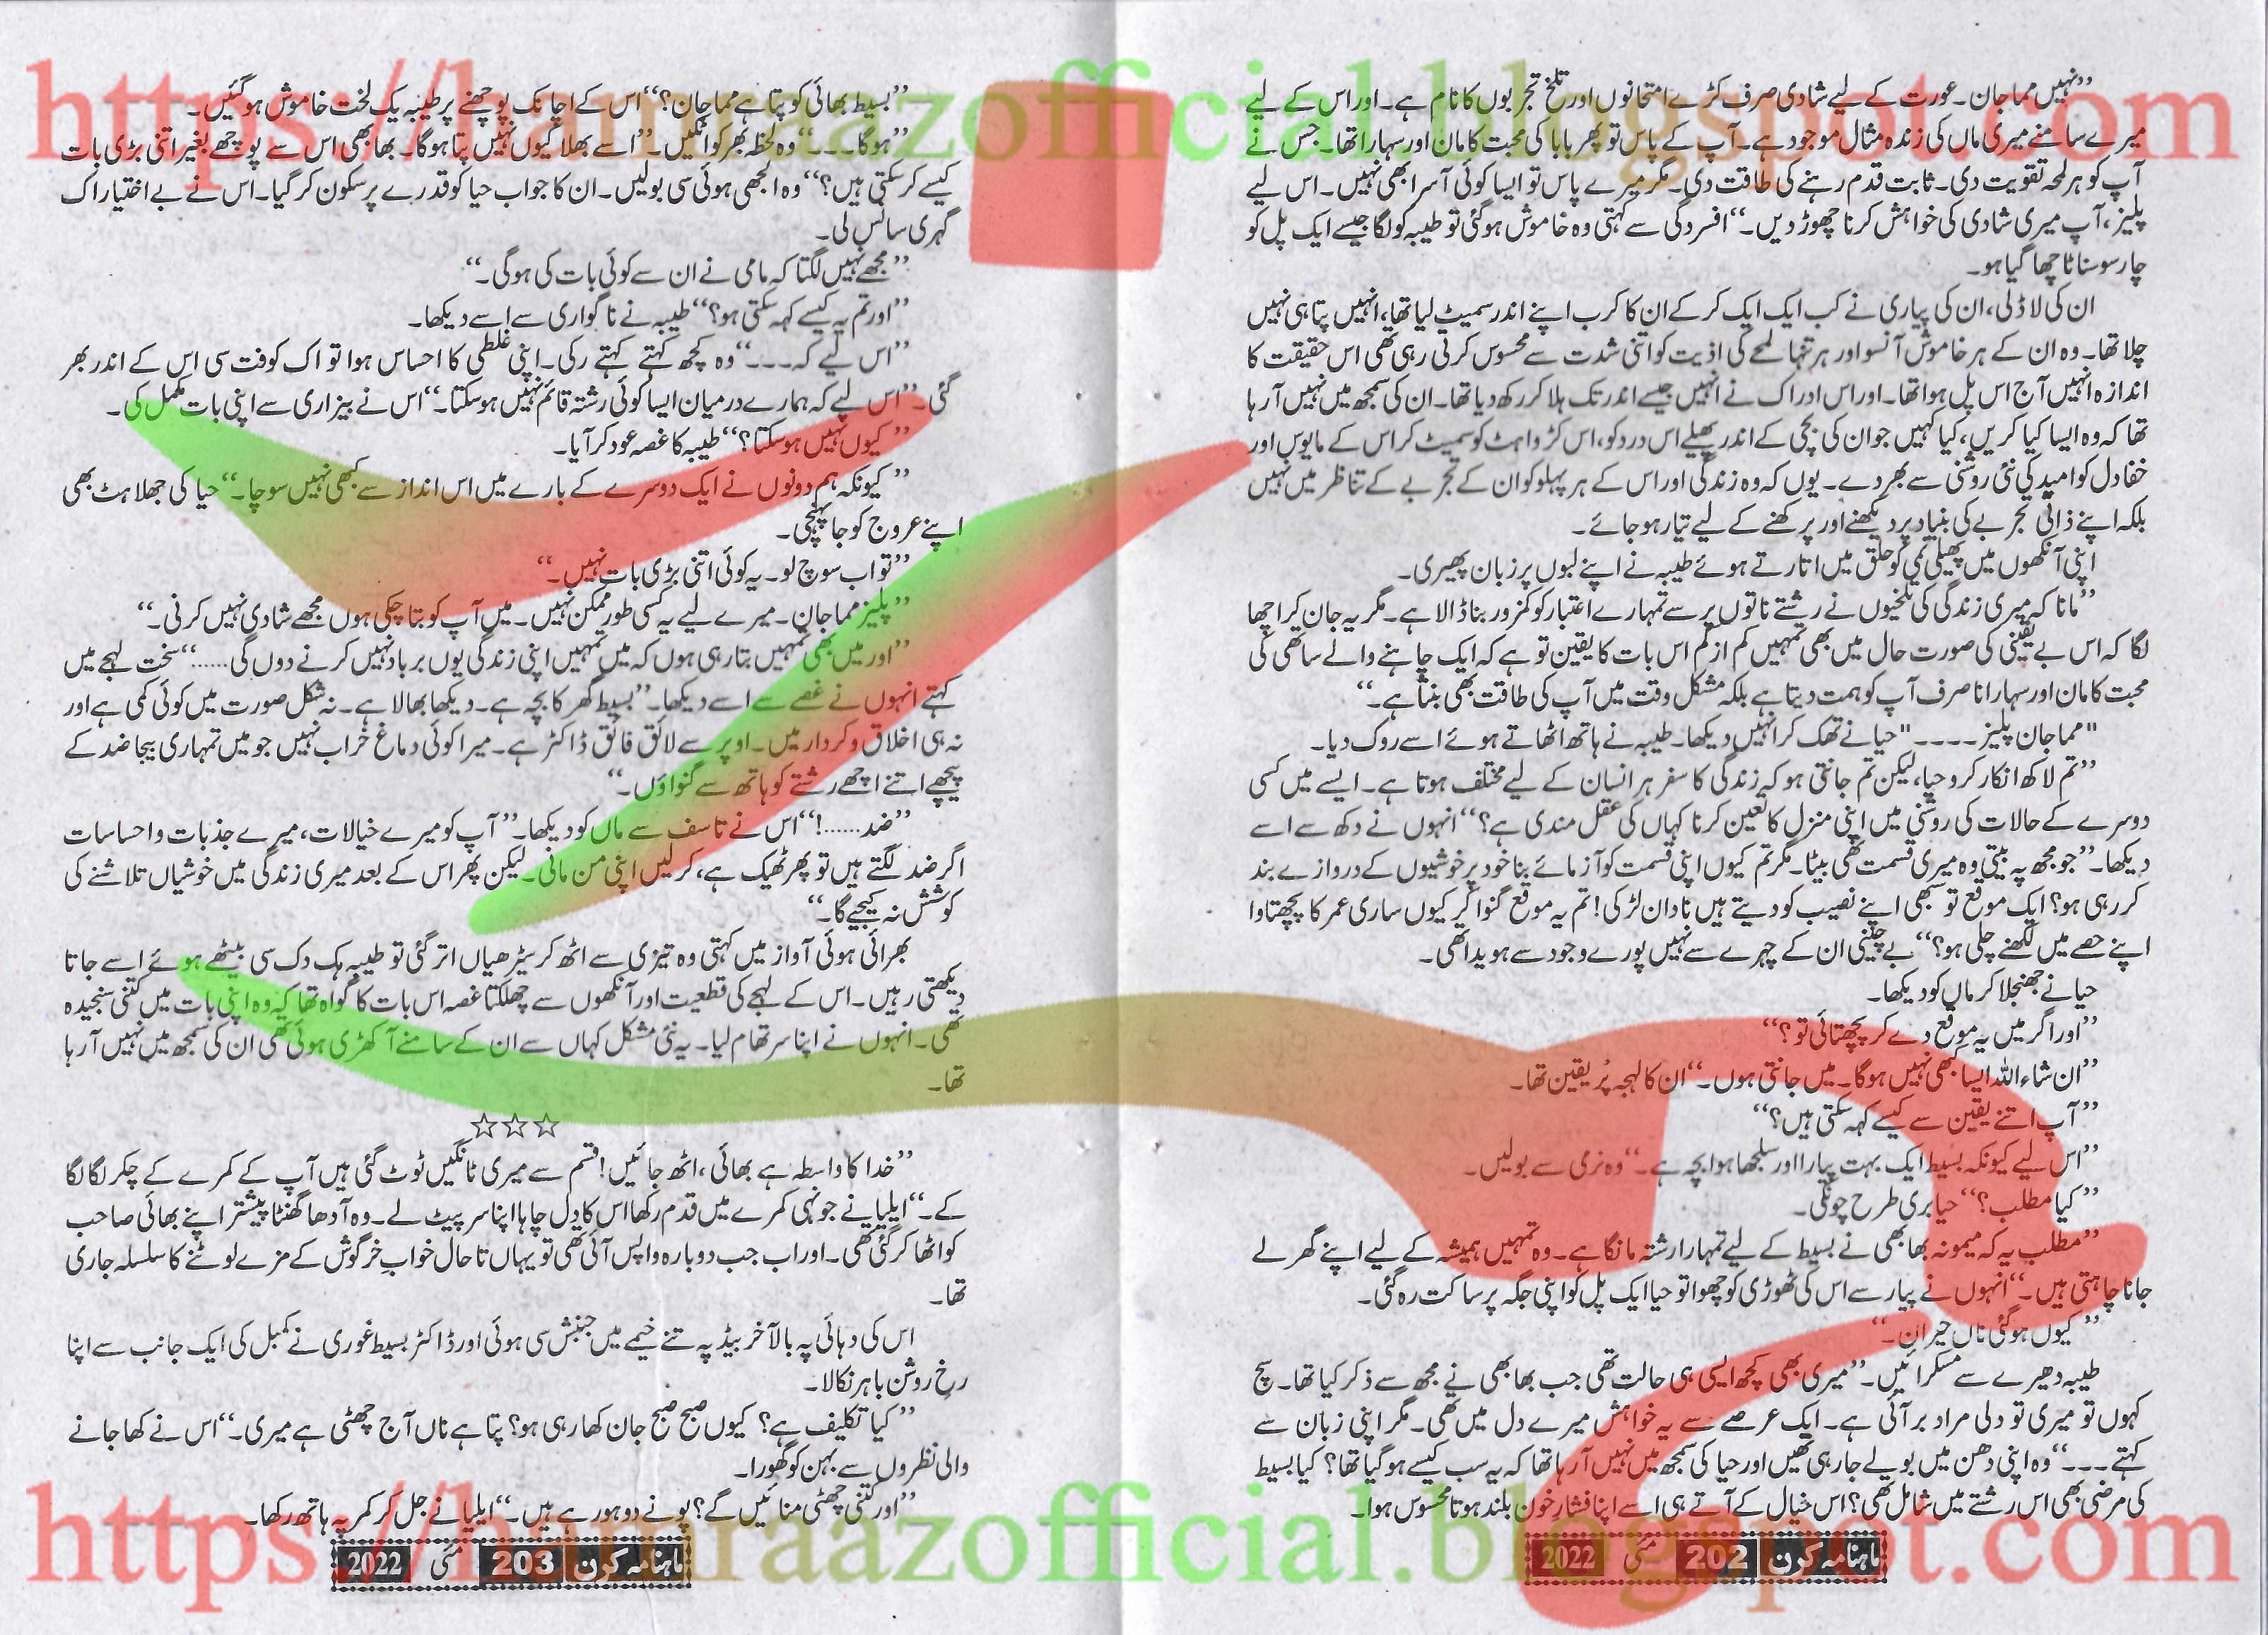 https://hamraazofficial.blogspot.com
’’نہیں مما جان۔ عورت کے لیے شادی صرف کڑے امتحانوں اور تلخ تجربوں کا نام ہے۔ اور اس کے لیے
میرے سامنے میری ماں کی زندہ مثال موجود ہے۔ آپ کے پاس تو پھر بابا کی محبت کا مان اور سہارا تھا۔ جس نے
آپ کو ہر لمحہ تقویت دی۔ ثابت قدم رہنے کی طاقت دی۔ مگر میرے پاس تو ایسا کوئی آسرا بھی نہیں۔ اس لیے
پلیز، آپ میری شادی کی خواہش کرنا چھوڑ دیں۔‘‘ افسردگی سے کہتی وہ خاموش ہوگئی تو طیبہ کو لگا جیسے ایک پل کو
چار سو سناٹا چھا گیا ہو۔
ان کی لاڈلی، ان کی پیاری نے کب ایک ایک کرکے ان کا کرب اپنے اندر سمیٹ لیا تھا، انہیں پتا ہی نہیں
چلا تھا۔ وہ ان کے ہر خاموش آنسو اور ہر تنہا لمحے کی اذیت کو اتنی شدت سے محسوس کرتی رہی تھی اس حقیقت کا
اندازہ انہیں آج اس پل ہوا تھا۔ اور اس ادراک نے انہیں جیسے اندر تک ہلا کر رکھ دیا تھا۔ ان کی سمجھ میں نہیں آرہا
تھا کہ وہ ایسا کیا کریں، کیا کہیں جو ان کی بچی کے اندر پھیلے اس درد کو، اس کڑواہٹ کو سمیٹ کر اس کے مایوس اور
خفا دل کو امید کی نئی روشنی سے بھر دے۔ یوں کہ وہ زندگی اور اس کے ہر پہلو کو ان کے تجربے کے تناظر میں نہیں
بلکہ اپنے ذاتی تجربے کی بنیاد پر دیکھنے اور پرکھنے کے لیے تیار ہو جائے۔
اپنی آنکھوں میں پھیلی نمی کو حلق میں اتارتے ہوئے طیبہ نے اپنے لبوں پر زبان پھیری۔
’’مانا کہ میری زندگی کی تلخیوں نے رشتے ناتوں پر سے تمہارے اعتبار کو کمزور بنا ڈالا ہے۔ مگر یہ جان کر اچھا
لگا کہ اس بے یقینی کی صورت حال میں بھی تمہیں کم از کم اس بات کا یقین تو ہے کہ ایک چاہنے والے ساتھی کی
محبت کا مان اور سہارا نا صرف آپ کو ہمت دیتا ہے بلکہ مشکل وقت میں آپ کی طاقت بھی بنتا ہے۔‘‘
"مما جان پلیز ۔۔۔۔" حیا نے تھک کر انہیں دیکھا۔ طیبہ نے ہاتھ اٹھاتے ہوئے اسے روک دیا۔
’’تم لاکھ انکار کرو حیا، لیکن تم جانتی ہو کہ زندگی کا سفر ہر انسان کے لیے مختلف ہوتا ہے۔ ایسے میں کسی
دوسرے کے حالات کی روشنی میں اپنی منزل کا تعین کرنا کہاں کی عقل مندی ہے؟‘‘ انہوں نے دکھ سے اسے
دیکھا۔ ’’جو مجھ پہ بیتی وہ میری قسمت تھی بیٹا۔ مگر تم کیوں اپنی قسمت کو آزمائے بنا خود پر خوشیوں کے دروازے بند
کر رہی ہو؟ ایک موقع تو سبھی اپنے نصیب کو دیتے ہیں نادان لڑکی! تم یہ موقع گنوا کر کیوں ساری عمر کا پچھتاوا
اپنے حصے میں لکھنے چلی ہو؟‘‘ بے چینی ان کے چہرے سے نہیں پورے وجود سے ہویدا تھی۔
حیا نے جھنجلا کر ماں کو دیکھا۔
’’اور اگر میں یہ موقع دے کر پچھتائی تو؟‘‘
’’ان شاء اللہ ایسا کبھی نہیں ہوگا۔ میں جانتی ہوں۔‘‘ ان کا لہجہ پُر یقین تھا۔
’’آپ اتنے یقین سے کیسے کہہ سکتی ہیں؟‘‘
’’اس لیے کیونکہ بسیط ایک بہت پیارا اور سلجھا ہوا بچہ ہے۔‘‘ وہ نرمی سے بولیں۔
’’کیا مطلب؟‘‘ حیا بری طرح چونکی۔
’’مطلب یہ کہ میمونہ بھابھی نے بسیط کے لیے تمہارا رشتہ مانگا ہے۔ وہ تمہیں ہمیشہ کے لیے اپنے گھر لے
جانا چاہتی ہیں۔‘‘ انہوں نے پیار سے اس کی ٹھوڑی کو چھوا تو حیا ایک پل کو اپنی جگہ پر ساکت رہ گئی۔
’’کیوں ہوگئی ناں حیران۔‘‘
طیبہ دھیرے سے مسکرائیں۔ ’’میری بھی کچھ ایسی ہی حالت تھی جب بھابھی نے مجھ سے ذکر کیا تھا۔ سچ
کہوں تو میری تو دلی مراد بر آئی ہے۔ ایک عرصے سے یہ خواہش میرے دل میں تھی۔ مگر اپنی زبان سے
کہتے ۔۔۔‘‘ وہ اپنی دھن میں بولے جارہی تھیں اور حیا کی سمجھ میں نہیں آرہا تھا کہ یہ سب کیسے ہو گیا تھا؟ کیا بسیط
کی مرضی بھی اس رشتے میں شامل تھی؟ اس خیال کے آتے ہی اسے اپنا فشارِ خون بلند ہوتا محسوس ہوا۔
ماہنامہ کرن 202 مئی 2022
’’بسیط بھائی کو پتا ہے مما جان؟‘‘ اس کے اچانک پوچھنے پر طیبہ یک لخت خاموش ہوگئیں۔
’’ہوگا ۔۔۔‘‘ وہ لحظہ بھر کو اٹکیں۔ ’’اسے بھلا کیوں نہیں پتا ہوگا۔ بھابھی اس سے پوچھے بغیر اتنی بڑی بات
کیسے کرسکتی ہیں؟‘‘ وہ الجھی ہوئی سی بولیں۔ ان کا جواب حیا کو قدرے پر سکون کر گیا۔ اس نے بے اختیار اک
گہری سانس لی۔
’’مجھے نہیں لگتا کہ مامی نے ان سے کوئی بات کی ہوگی۔‘‘
’’اور تم یہ کیسے کہہ سکتی ہو؟‘‘ طیبہ نے ناگواری سے اسے دیکھا۔
’’اس لیے کہ ۔۔۔‘‘ وہ کچھ کہتے کہتے رکی۔ اپنی غلطی کا احساس ہوا تو اک کوفت سی اس کے اندر بھر
گئی۔ ’’اس لیے کہ ہمارے درمیان ایسا کوئی رشتہ قائم نہیں ہوسکتا۔‘‘ اس نے بیزاری سے اپنی بات مکمل کی۔
’’کیوں نہیں ہوسکتا؟‘‘ طیبہ کا غصہ عود کر آیا۔
’’کیونکہ ہم دونوں نے ایک دوسرے کے بارے میں اس انداز سے کبھی نہیں سوچا۔‘‘ حیا کی جھلاہٹ بھی
اپنے عروج کو جا پہنچی۔
’’تو اب سوچ لو۔ یہ کوئی اتنی بڑی بات نہیں۔‘‘
’’پلیز مما جان۔ میرے لیے یہ کسی طور ممکن نہیں۔ میں آپ کو بتا چکی ہوں مجھے شادی نہیں کرنی۔‘‘
’’اور میں بھی تمہیں بتا رہی ہوں کہ میں تمہیں اپنی زندگی یوں برباد نہیں کرنے دوں گی……‘‘ سخت لہجے میں
کہتے انہوں نے غصے سے اسے دیکھا۔ ’’بسیط گھر کا بچہ ہے۔ دیکھا بھالا ہے۔ نہ شکل صورت میں کوئی کمی ہے اور
نہ ہی اخلاق و کردار میں۔ اوپر سے لائق فائق ڈاکٹر ہے۔ میرا کوئی دماغ خراب نہیں جو میں تمہاری بیجا ضد کے
پیچھے اتنے اچھے رشتے کو ہاتھ سے گنواؤں۔‘‘
’’ضد……!‘‘ اس نے تاسف سے ماں کو دیکھا۔ ’’آپ کو میرے خیالات، میرے جذبات و احساسات
اگر ضد لگتے ہیں تو پھر ٹھیک ہے، کرلیں اپنی من مانی۔ لیکن پھر اس کے بعد میری زندگی میں خوشیاں تلاشنے کی
کوشش نہ کیجیے گا۔‘‘
بھرائی ہوئی آواز میں کہتی وہ تیزی سے اٹھ کر سیڑھیاں اتر گئی تو طیبہ ہک دک سی بیٹھے ہوئے اسے جاتا
دیکھتی رہیں۔ اس کے لہجے کی قطعیت اور آنکھوں سے چھلکتا غصہ اس بات کا گواہ تھا کہ وہ اپنی بات میں کتنی سنجیدہ
تھی۔ انہوں نے اپنا سر تھام لیا۔ یہ نئی مشکل کہاں سے ان کے سامنے آ کھڑی ہوئی تھی ان کی سمجھ میں نہیں آرہا
تھا۔
☆☆☆
’’خدا کا واسطہ ہے بھائی، اٹھ جائیں! قسم سے میری ٹانگیں ٹوٹ گئی ہیں آپ کے کمرے کے چکر لگا لگا
کے۔‘‘ ایلیا نے جونہی کمرے میں قدم رکھا اس کا دل چاہا اپنا سر پیٹ لے۔ وہ آدھا گھنٹا پیشتر اپنے بھائی صاحب
کو اٹھا کر گئی تھی۔ اور اب جب دوبارہ واپس آئی تھی تو یہاں تاحال خوابِ خرگوش کے مزے لوٹنے کا سلسلہ جاری
تھا۔
اس کی دہائی پہ بالآخر بیڈ پہ تنے خیمے میں جنبش سی ہوئی اور ڈاکٹر بسیط غوری نے کمبل کی ایک جانب سے اپنا
رخِ روشن باہر نکالا۔
’’کیا تکلیف ہے؟ کیوں صبح صبح جان کھا رہی ہو؟ پتا ہے ناں آج چھٹی ہے میری۔‘‘ اس نے کھا جانے
والی نظروں سے بہن کو گھورا۔
’’اور کتنی چھٹی منائیں گے؟ پونے دو ہو رہے ہیں۔‘‘ ایلیا نے جل کر کمر پہ ہاتھ رکھا۔
ماہنامہ کرن 203 مئی 2022
https://hamraazofficial.blogspot.com